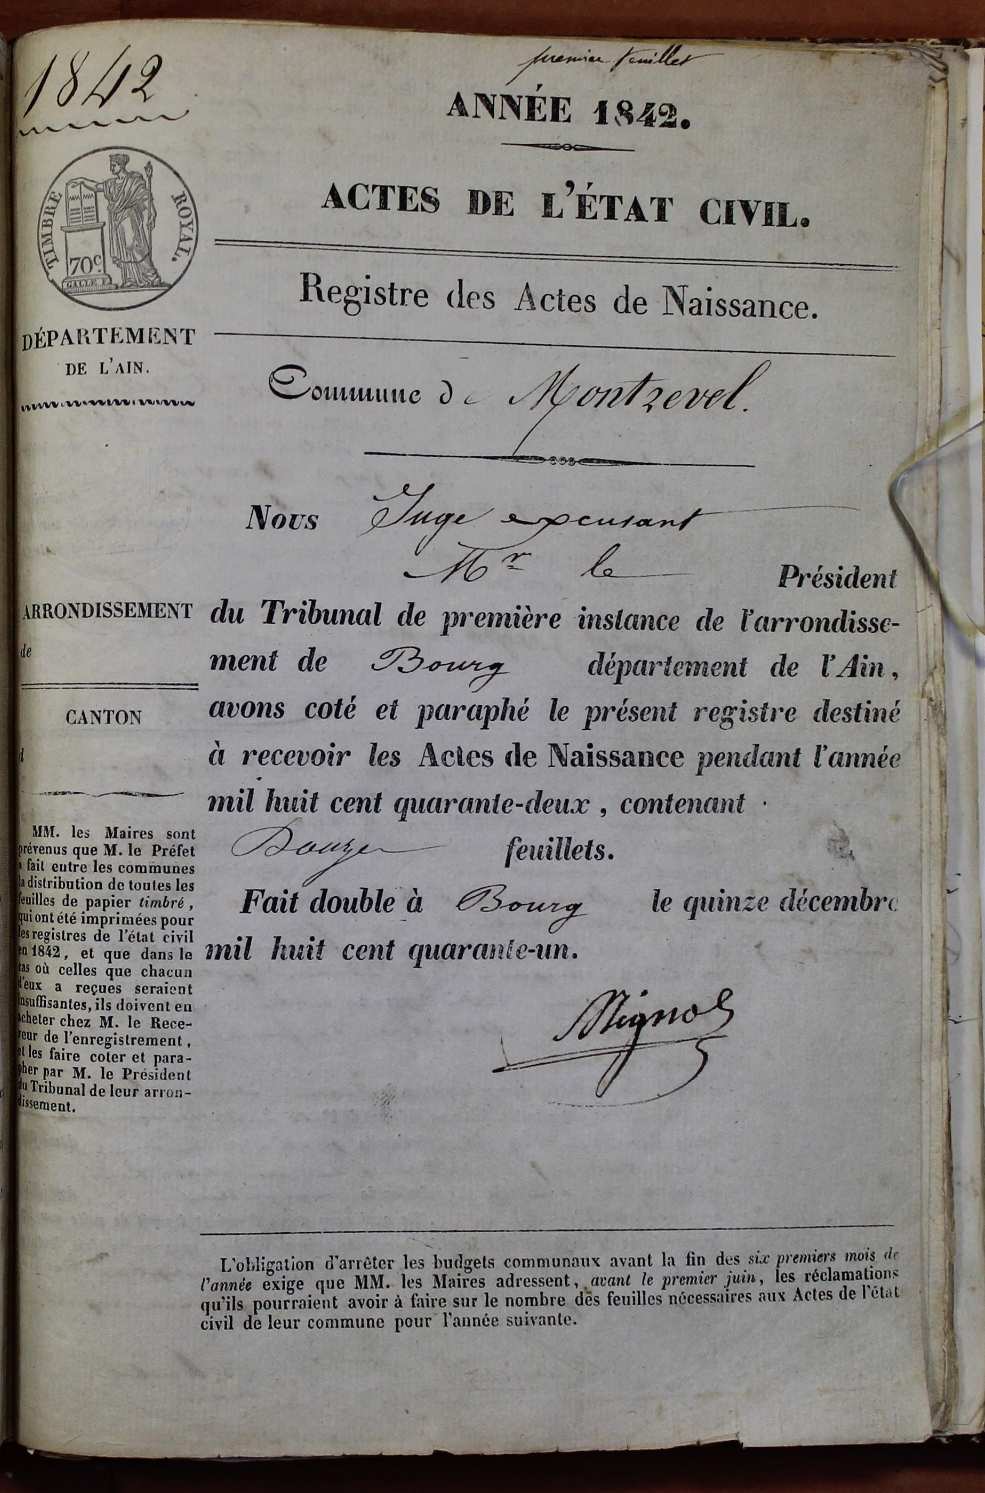 1842
premier feuillet
ANNÉE 1842.
ACTES DE L'ÉTAT CIVIL.
TIMBRE ROYAL.
70c
DÉPARTEMENT
DE L'AIN.
Registre des Actes de Naissance.
Commune de Montrevel.
Nous Juge excusant
Mr le Président
du Tribunal de première instance de l'arrondisse-
ment de Bourg département de l'Ain,
avons coté et paraphé le présent registre destiné
à recevoir les Actes de Naissance pendant l'année
mil huit cent quarante-deux, contenant
Douze feuillets.
Fait double à Bourg le quinze décembre
mil huit cent quarante-un.
ARRONDISSEMENT
de
CANTON
d
MM. les Maires sont
prévenus que M. le Préfet
a fait entre les communes
la distribution de toutes les
feuilles de papier timbré,
qui ont été imprimées pour
les registres de l'état civil
en 1842, et que dans le
cas où celles que chacun
d'eux a reçues seraient
insuffisantes, ils doivent en
acheter chez M. le Rece-
veur de l'enregistrement,
et les faire coter et para-
pher par M. le Président
du Tribunal de leur arron-
dissement.
L'obligation d'arrêter les budgets communaux avant la fin des six premiers mois de
l'année exige que MM. les Maires adressent, avant le premier juin, les réclamations
qu'ils pourraient avoir à faire sur le nombre des feuilles nécessaires aux Actes de l'état
civil de leur commune pour l'année suivante.